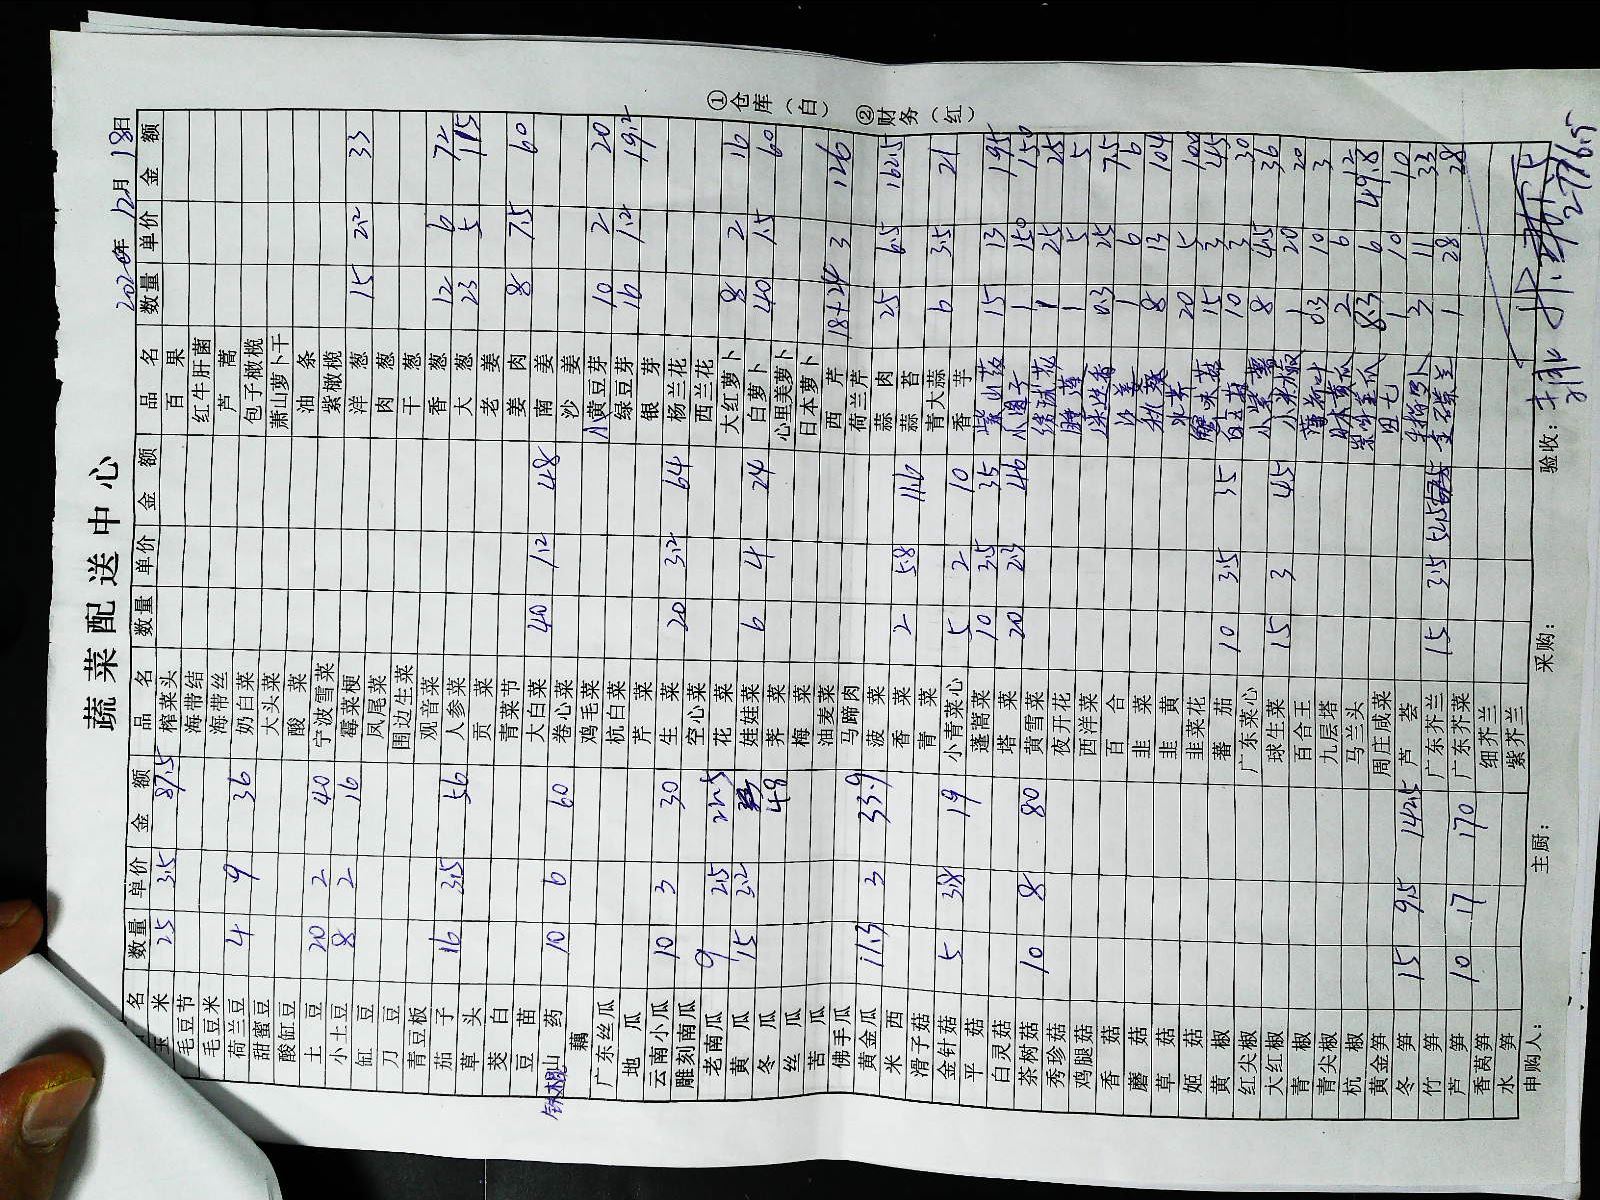 蔬菜配送中心
2020年12月18日
品名 数量 单价 金额 品名 数量 单价 金额 品名 数量 单价 金额
玉米 25 3.5 87.5 榨菜头 百果
毛豆节 海带结 红牛肝菌
毛豆米 海带丝 芦蒿
荷兰豆 4 9 36 奶白菜 包子橄榄
甜蜜豆 大头菜 萧山萝卜干
酸缸豆 酸菜 油条
土豆 20 2 40 宁波雪菜 紫橄榄
小土豆 8 2 16 霉菜梗 洋葱 15 2.2 33
缸豆 凤尾菜 肉葱
刀豆 围边生菜 干葱
青豆板 观音菜 香葱 12 6 72
茄子 16 3.5 56 人参菜 大葱 23 5 115
草头 贡菜 老姜
茭白 青菜节 姜肉 8 7.5 60
豆苗 大白菜 40 1.2 48 南姜
铁棍山药 10 6 60 卷心菜 沙姜
藕 鸡毛菜 小黄豆芽 10 2 20
广东丝瓜 杭白菜 绿豆芽 16 1.2 19.2
地瓜 芹菜 银芽
云南小瓜 10 3 30 生菜 20 3.2 64 杨兰花
雕刻南瓜 空心菜 西兰花
老南瓜 9 2.5 22.5 花菜 大红萝卜 8 2 16
黄瓜 15 3.2 48 娃娃菜 6 4 24 白萝卜 40 1.5 60
冬瓜 荠菜 心里美萝卜
丝瓜 梅菜 日本萝卜
苦瓜 油麦菜 西芹 18+24 3 126
佛手瓜 马蹄肉 荷兰芹
黄金瓜 11.3 3 33.9 菠菜 蒜肉 25 6.5 162.5
米西 香菜 2 5.8 11.6 蒜苔
滑子菇 青菜 青大蒜 6 3.5 21
金针菇 5 3.8 19 小青菜心 5 2 10 香芋
平菇 蓬蒿菜 10 3.5 35 15 13 195
白灵菇 塔菜 20 2.3 46 小圆子 1 150 150
茶树菇 10 8 80 黄雪菜 1 25 25
秀珍菇 夜开花 1 5 5
鸡腿菇 西洋菜 0.3 25 7.5
香菇 百合 沙姜 1 6 6
蘑菇 韭菜 秋葵 8 13 104
草菇 韭黄 水芹 20 5 100
姬菇 韭菜花 蟹味菇 15 3 45
黄椒 蕃茄 10 3.5 35 白玉菇 10 3 30
红尖椒 广东菜心 小紫薯 8 4.5 36
大红椒 球生菜 15 3 45 小米椒 1 20 20
青椒 百合王 薄荷叶 0.3 10 3
青尖椒 九层塔 日本黄瓜 2 6 12
杭椒 马兰头 8.3 6 49.8
黄金笋 周庄咸菜 田七 1 10 10
冬笋 15 9.5 142.5 芦荟 3 11 33
竹笋 广东芥兰 15 3.5 52.5 1 28 28
芦笋 10 17 170 广东芥菜
香莴笋 细芥兰
水笋 紫芥兰
申购人: 主厨: 采购: 验收: 2776.5
①仓库(白) ②财务(红)